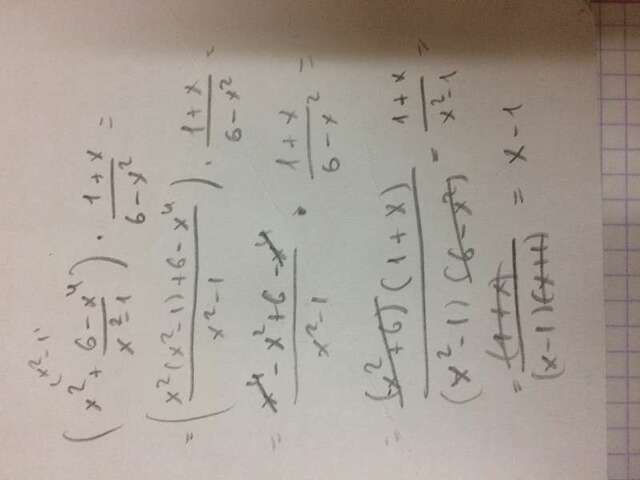 (x²-1)
(x² + (6-x⁴)/(x²-1)) · (1+x)/(6-x²) =
= ((x²(x²-1)+6-x⁴)/(x²-1)) · (1+x)/(6-x²) =
= (x⁴-x²+6-x⁴)/(x²-1) · (1+x)/(6-x²) =
= ((x²+6)(1+x))/((x²-1)(6-x²)) = (1+x)/(x²-1) =
= (1+x)/((x-1)(x+1)) = x-1